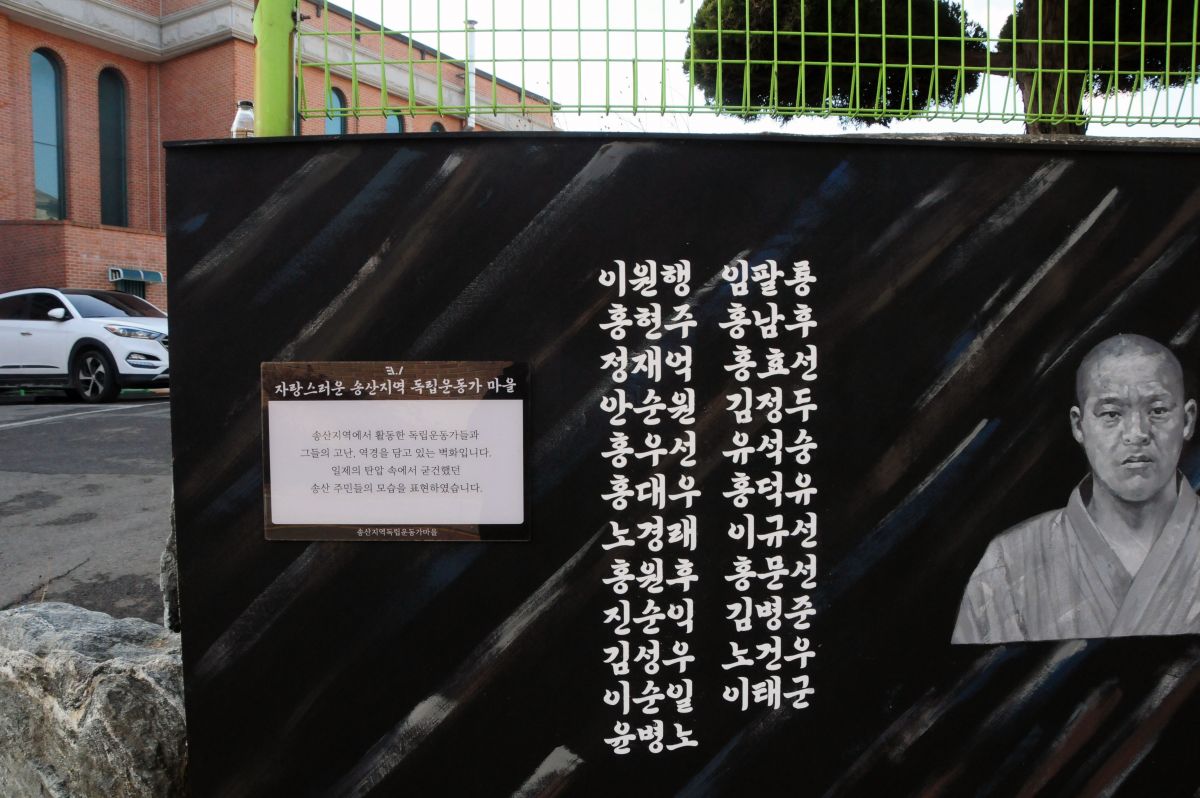 3.1
자랑스러운 송산지역 독립운동가 마을
송산지역에서 활동한 독립운동가들과
그들의 고난, 역경을 담고 있는 벽화입니다.
일제의 탄압 속에서 굳건했던
송산 주민들의 모습을 표현하였습니다.
송산지역독립운동가마을
이원행 임팔룡
홍헌주 홍남후
정재억 홍효선
안순원 김정두
홍우선 유석숭
홍대우 홍덕유
노경래 이규선
홍원후 홍문선
진순익 김병준
김성우 노건우
이순일 이태군
윤병노